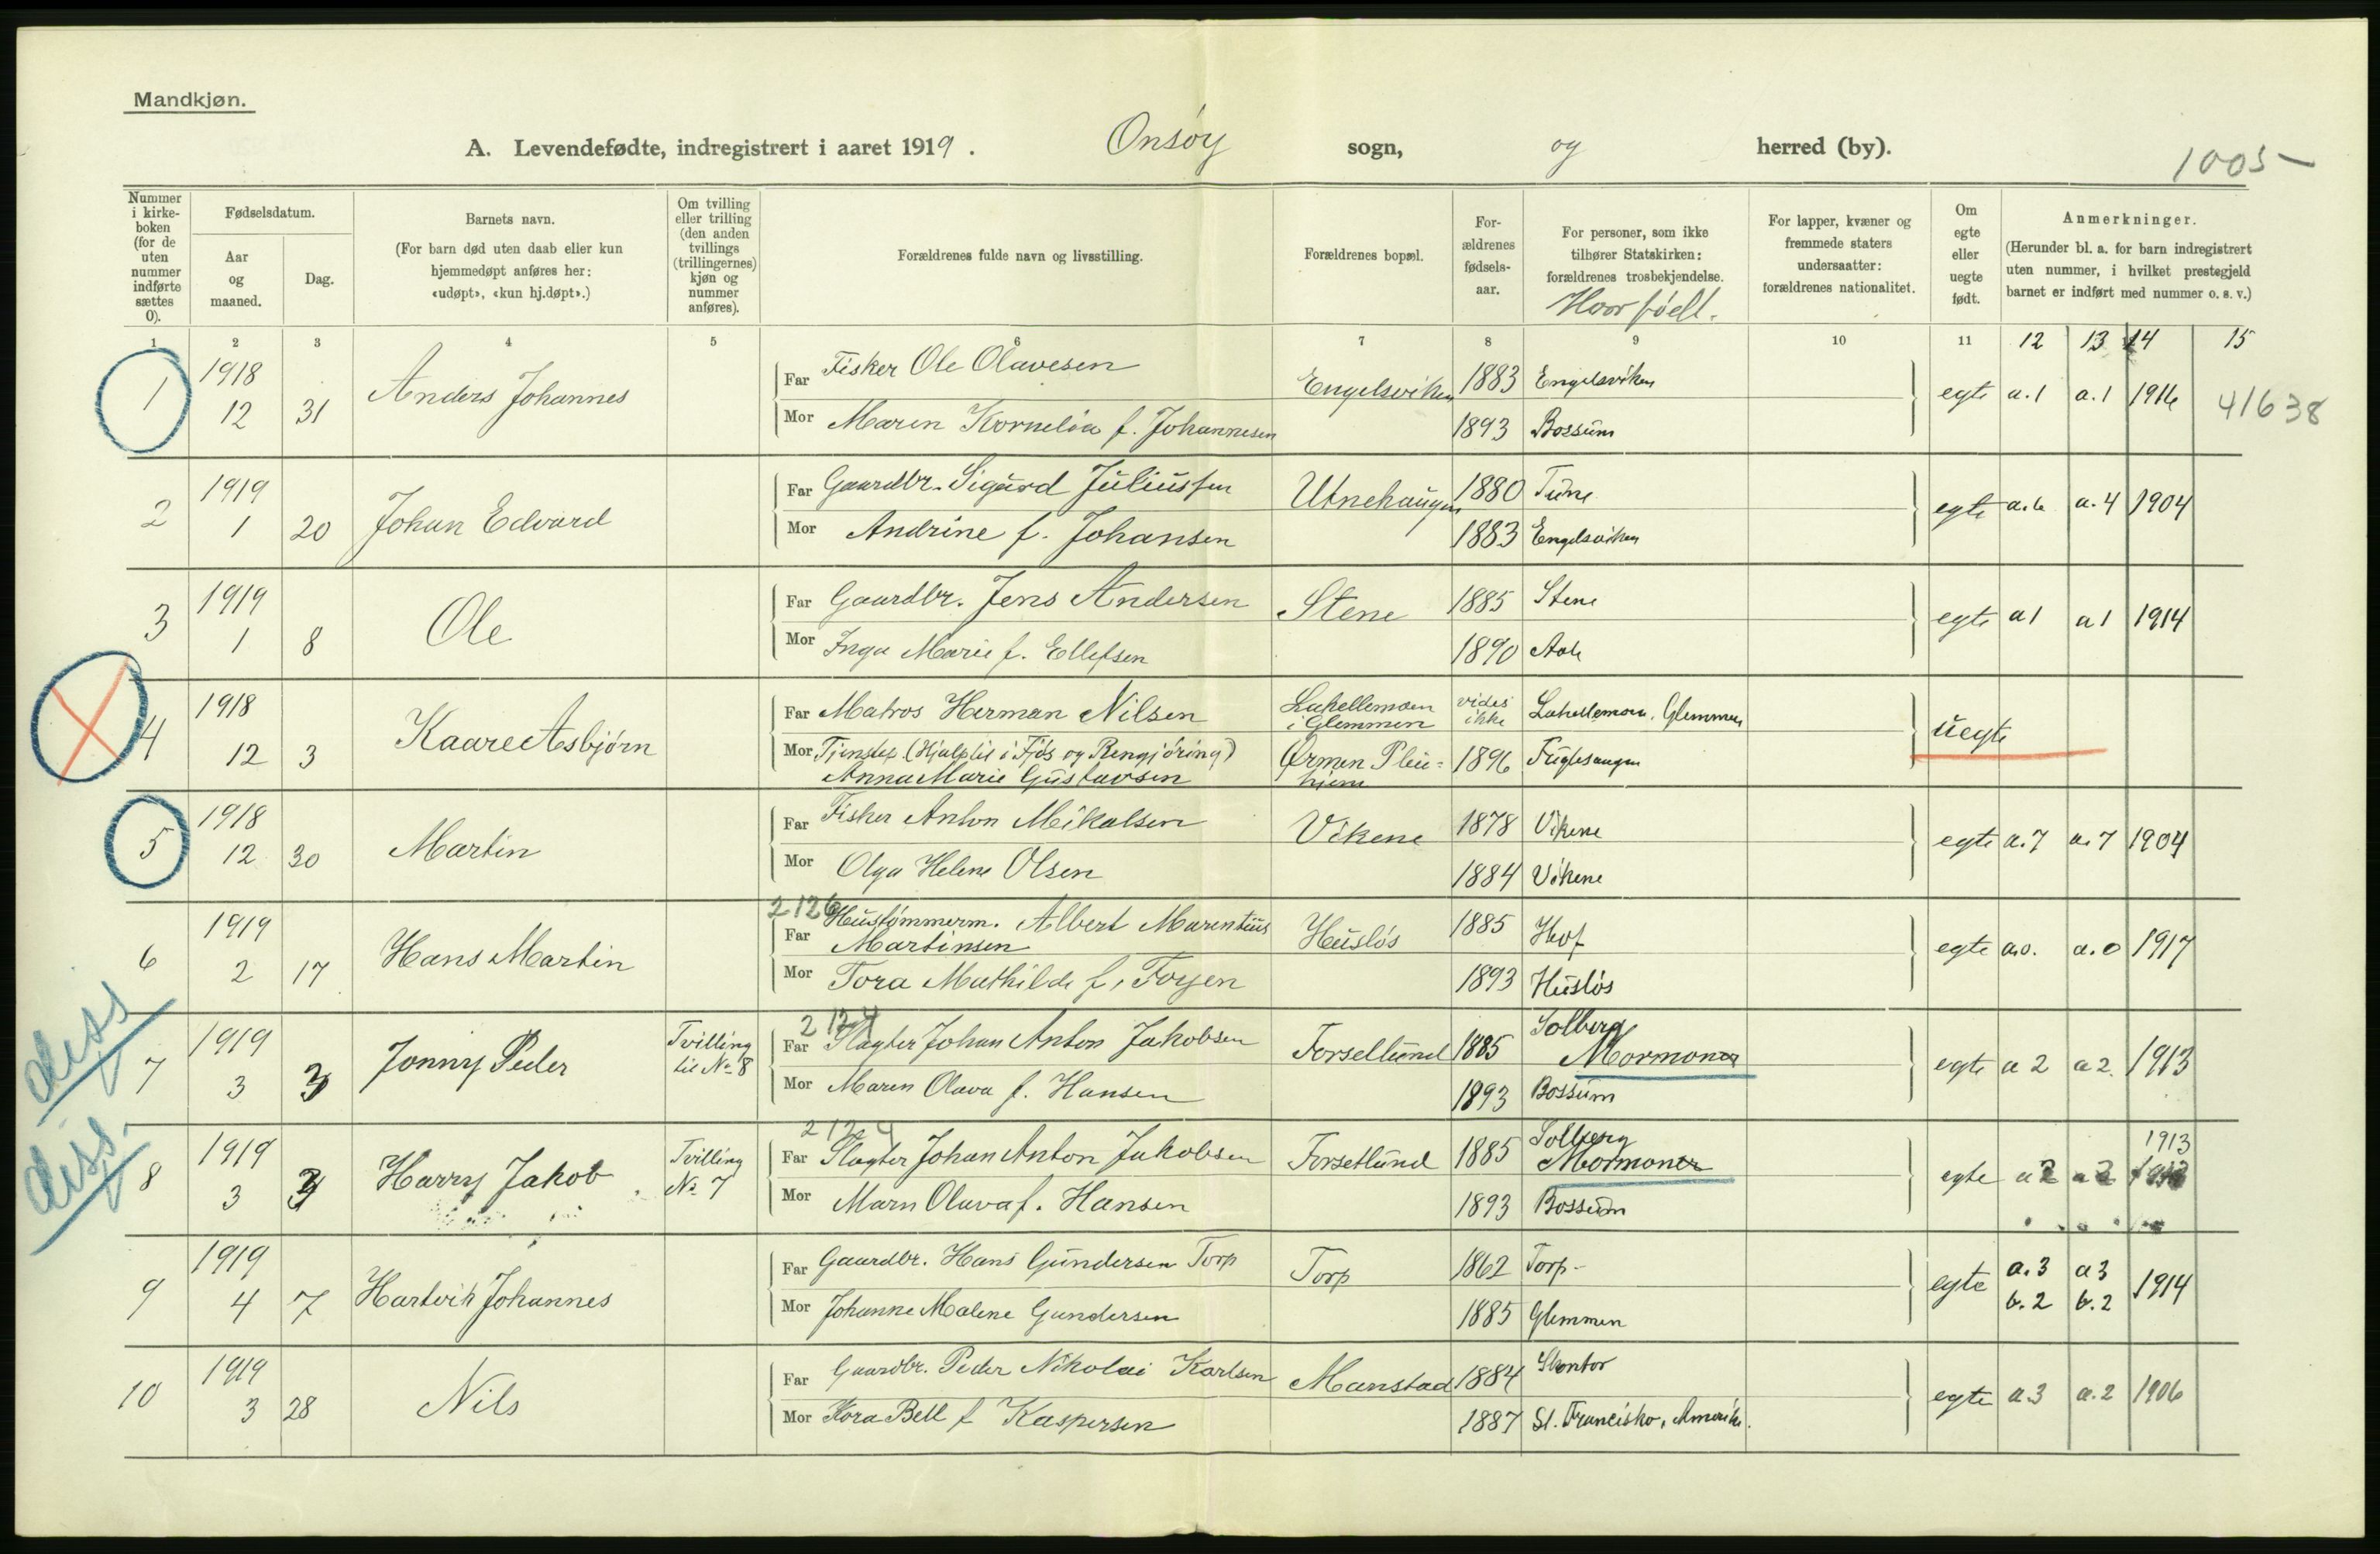 Mandkjøn.
A. Levendefødte, indregistrert i aaret 1919. Onsøy sogn, og herred (by).
1005 —
Nummer i kirke-boken (for de uten nummer indførte sættes 0).
Fødselsdatum.
Aar og maaned.
Dag.
Barnets navn.
(For barn død uten daab eller kun hjemmedøpt anføres her: «udøpt», «kun hj.døpt».)
Om tvilling eller trilling (den anden tvillings (trillingernes) kjøn og nummer anføres).
Forældrenes fulde navn og livsstilling.
Forældrenes bopæl.
For-ældrenes fødsels-aar.
For personer, som ikke tilhører Statskirken: forældrenes trosbekjendelse.
Hvor født.
For lapper, kvæner og fremmede staters undersaatter: forældrenes nationalitet.
Om egte eller uegte født.
Anmerkninger.
(Herunder bl. a. for barn indregistrert uten nummer, i hvilket prestegjeld barnet er indført med nummer o. s. v.)
1 2 3 4 5 6 7 8 9 10 11 12 13 14 15
1 1918 12 31 Anders Johannes
Far Fisker Ole Olavesen Engelsviken 1883 Engelsviken
Mor Maren Kornelia f. Johannesen 1893 Bossum
egte a.1 a.1 1916 41638
2 1919 1 20 Johan Edvard
Far Gaardbr. Sigurd Juliussen Utnehaugen 1880 Tune
Mor Andrine f. Johansen 1883 Engelsviken
egte a.6 a.4 1904
3 1919 1 8 Ole
Far Gaardbr. Jens Andersen Stene 1885 Stene
Mor Inga Marie f. Ellefsen 1890
egte a1 a1 1914
4 1918 12 3 Kaare Asbjørn
Far Matros Herman Nilsen Lahellemoen i Glemmen vides ikke Lahellemoen, Glemmen
Mor Tjenstep. (Hjælp til i Fjøs og Rengjøring) Anna Marie Gustavsen Ørmen Pleie-hjem 1896 Fuglesangen
uegte
5 1918 12 30 Martin
Far Fisker Anton Mikalsen Vikene 1878 Vikene
Mor Olga Helene Olsen 1884 Vikene
egte a.7 a.7 1904
2126
6 1919 2 17 Hans Martin
Far Hustømmerm. Albert Marentius Martinsen Husløs 1885 Hof
Mor Tora Mathilde f. 1893 Husløs
egte a.o. a.o 1917
diss
2124
7 1919 3 3 Jonny Peder Tvilling til No 8
Far Slagter Johan Anton Jakobsen Forsetlund 1885 Solberg
Mormoner
Mor Maren Olava f. Hansen 1893 Bossum
egte a2 a2. 1913
diss.
2124
8 1919 3 3 Harry Jakob Tvilling No 7
Far Slagter Johan Anton Jakobsen Forsetlund 1885 Solberg
Mormoner
Mor Marn Olava f. Hansen 1893 Bossum
egte a2 a2 1913
9 1919 4 7 Hartvik Johannes
Far Gaardbr. Hans Gundersen Torp Torp 1862 Torp-
Mor Johanne Malene Gundersen 1885 Glemmen
egte a.3 b.2 a3 b.2 1914
10 1919 3 28 Nils
Far Gaardbr. Peder Nikolai Karlsen Manstad 1884
Mor Kora Bell f Kaspersen 1887 St. Francisko, Amerika.
egte a.3 a.2 1906